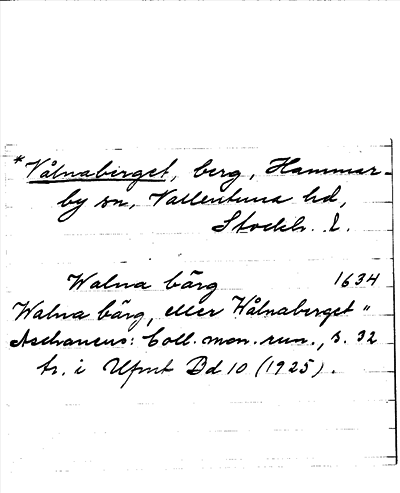 * Vålnaberget, berg, Hammar-
by sn, Vallentuna hd,
Stockh. l.
Walna bärg 1634
Walna bärg, eller Wålnaberget "
Aschaneus: Coll. mon. run., s. 32
tr. i Ufmt Bd 10 (1925).